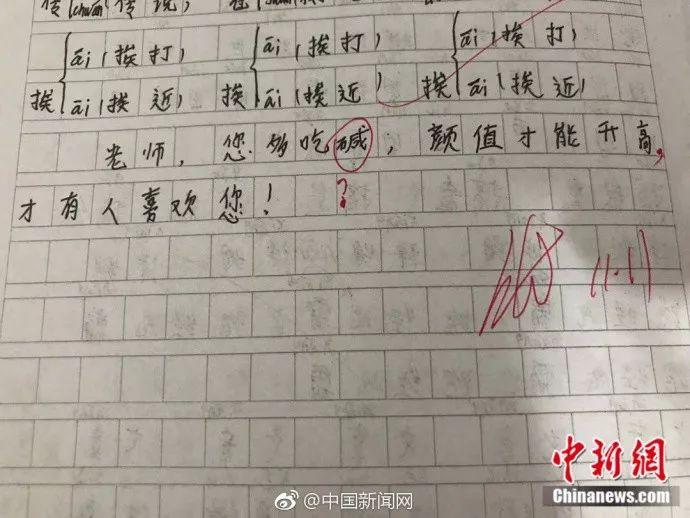 传(chuán)传说)
āi(挨打) āi(挨打) āi(挨打)
挨 挨 挨
āi(挨近) āi(挨近) āi(挨近)
老师,您多吃碱,颜值才能升高,
才有人喜欢您! ?
11.11
中新网
Chinanews.com
@中国新闻网